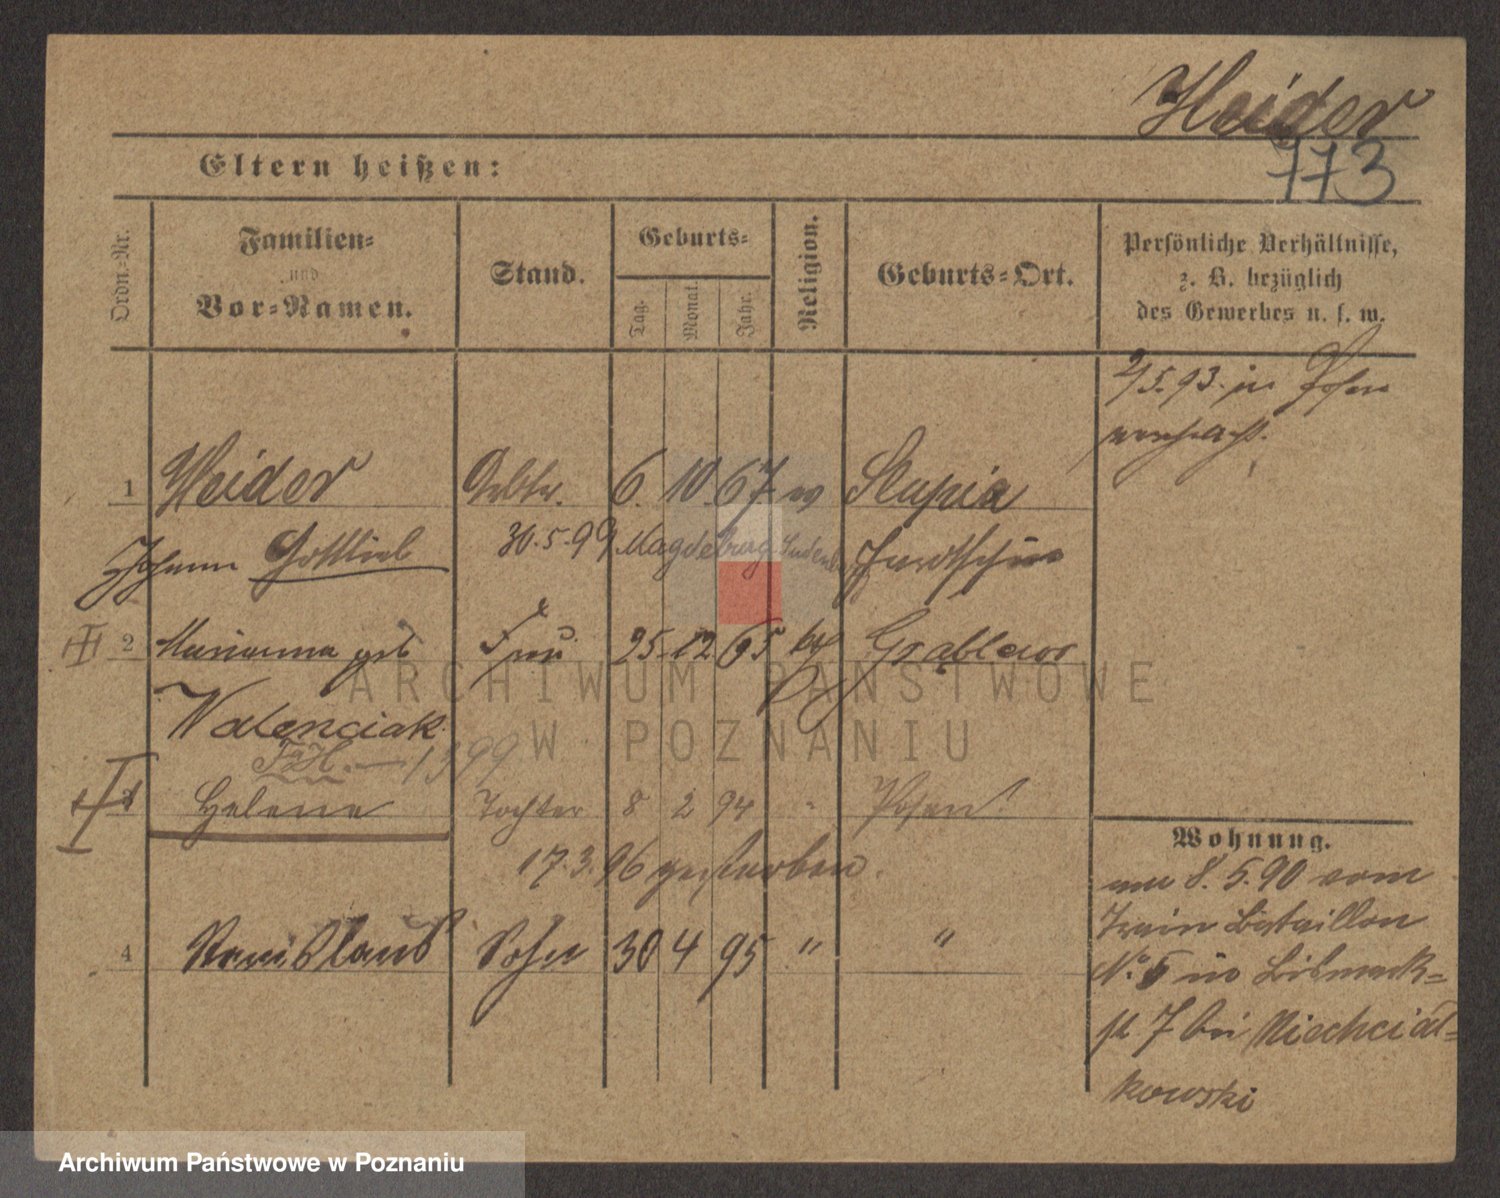 Heider
773
Eltern heißen:
Ordn.-Nr.
Familien-
und
Vor-Namen.
Stand.
Geburts-
Tag.
Monat.
Jahr.
Religion.
Geburts-Ort.
Persönliche Verhältnisse,
z. B. bezüglich
des Gewerbes u. s. w.
2/5.93. in Posen
1 Heider Arbtr. 6. 10. 67. ev Slupia
Johann Gottlieb 30.5.99 Magdeburg
2 Marianna geb Frau 25 12 65 kath Grąblewo
Walenciak
1399
Helene Tochter 8 2 94 " Posen
17.3.96 gestorben.
4 Stanislaus Sohn 30 4 95 " "
Wohnung.
am 8.5.90 vom
Train Bataillon
No. 5 in Bismark-
st 7 bei Miechcial-
kowski
ARCHIWUM PAŃSTWOWE
W POZNANIU
Archiwum Państwowe w Poznaniu